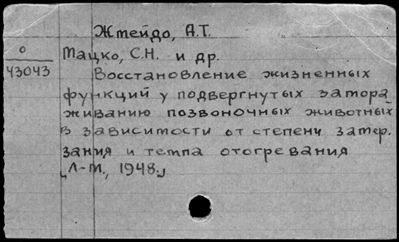 Жмейдо, А.Т.
О
43043
Мацко, С.Н. и др.
Восстановление жизненных
функций у подвергнутых замора_
живанию позвоночных животных
в зависимости от степени замер_
зания и темпа отогревания
„Л-М., 1948.„